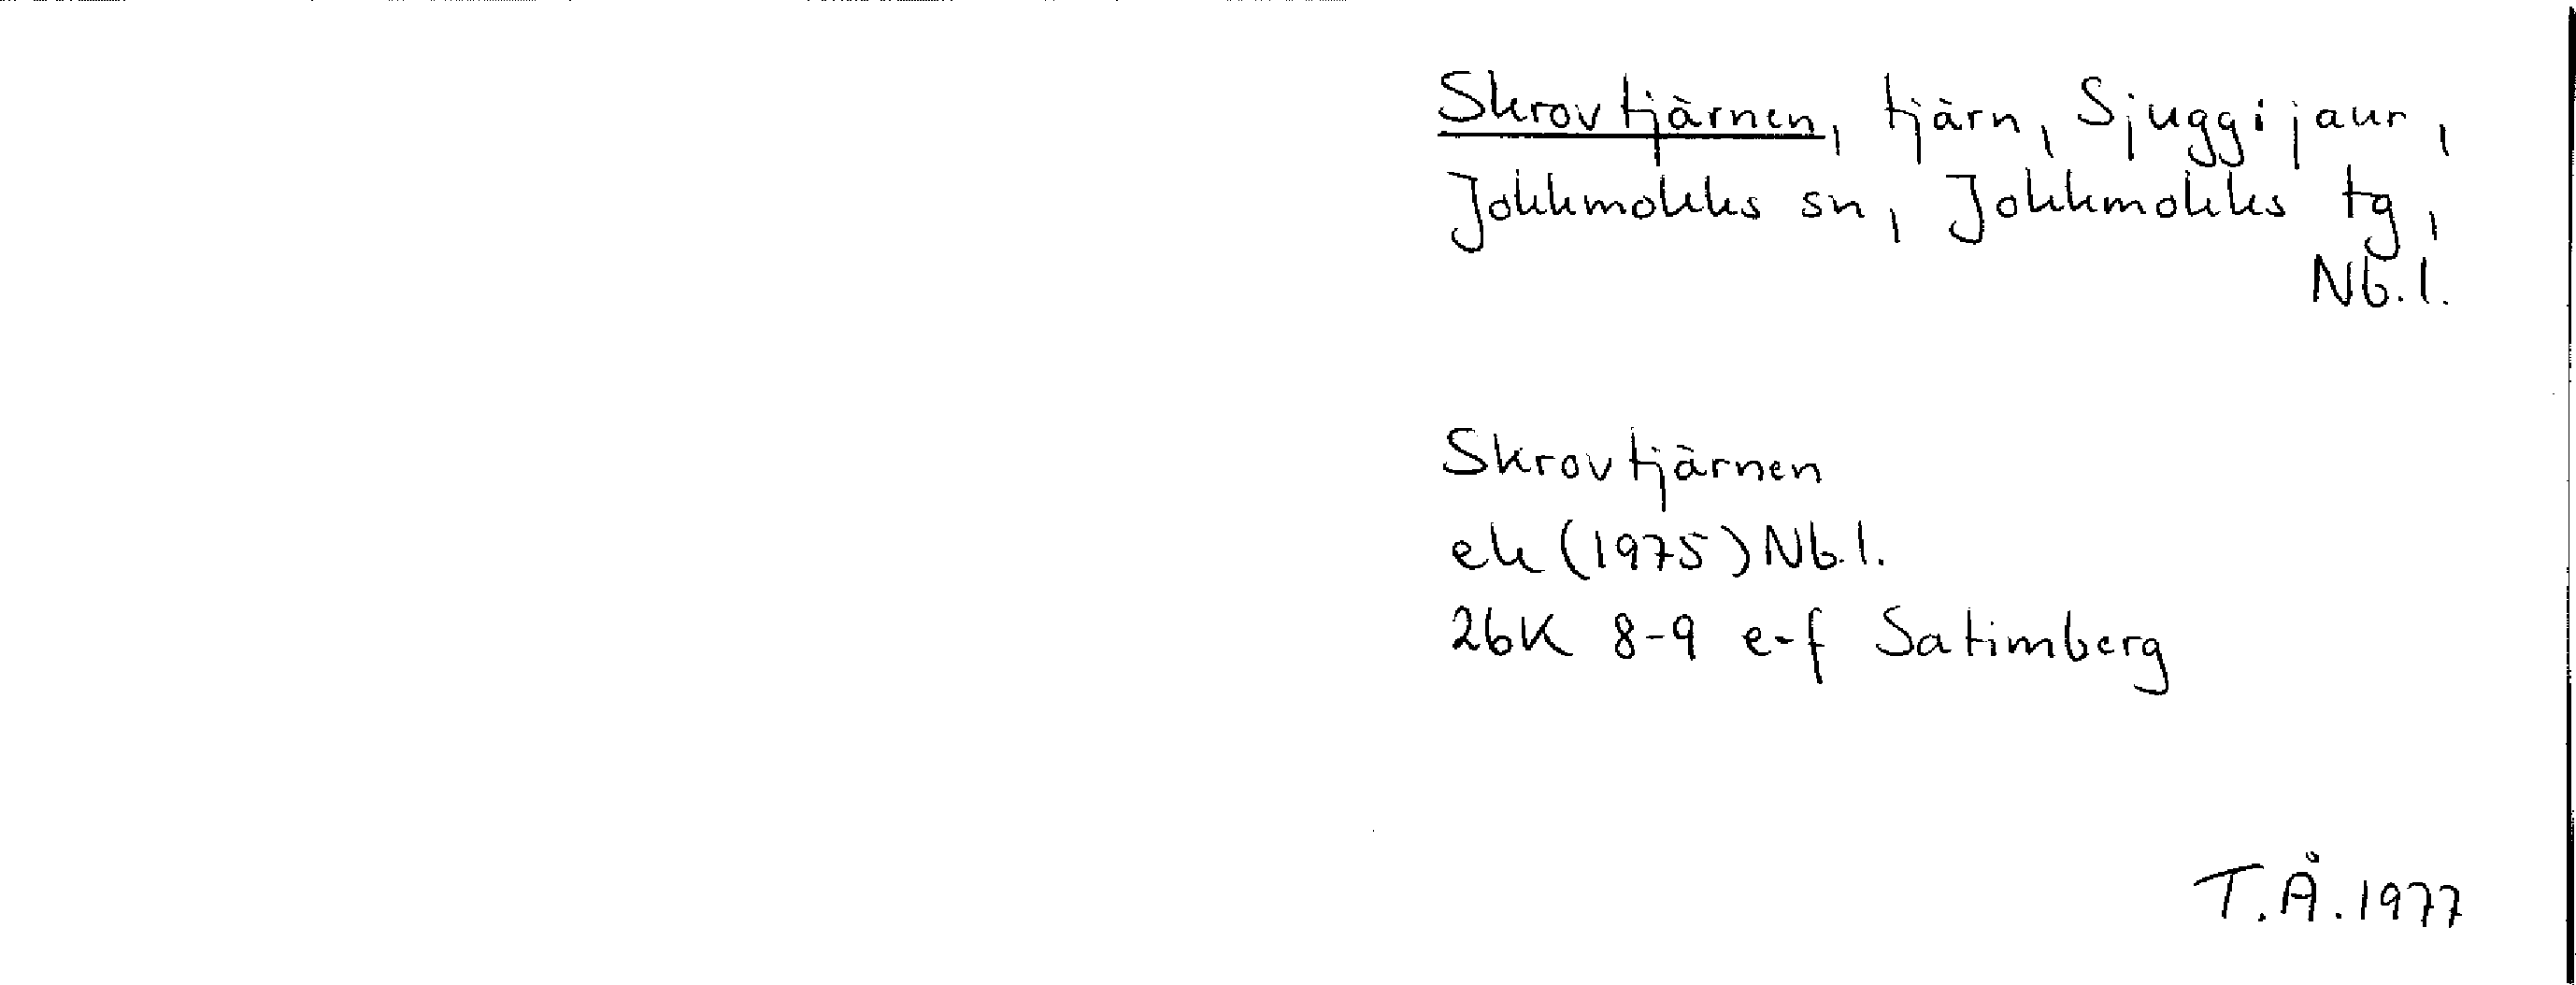 Skrovtjärnen, tjärn, Sjuggijaur,
Jokkmokks sn, Jokkmokks tg,
Nb.l.
Skrovtjärnen
ek (1975) Nb.l.
26K 8-9 e-f Satimberg
T.Å. 1977